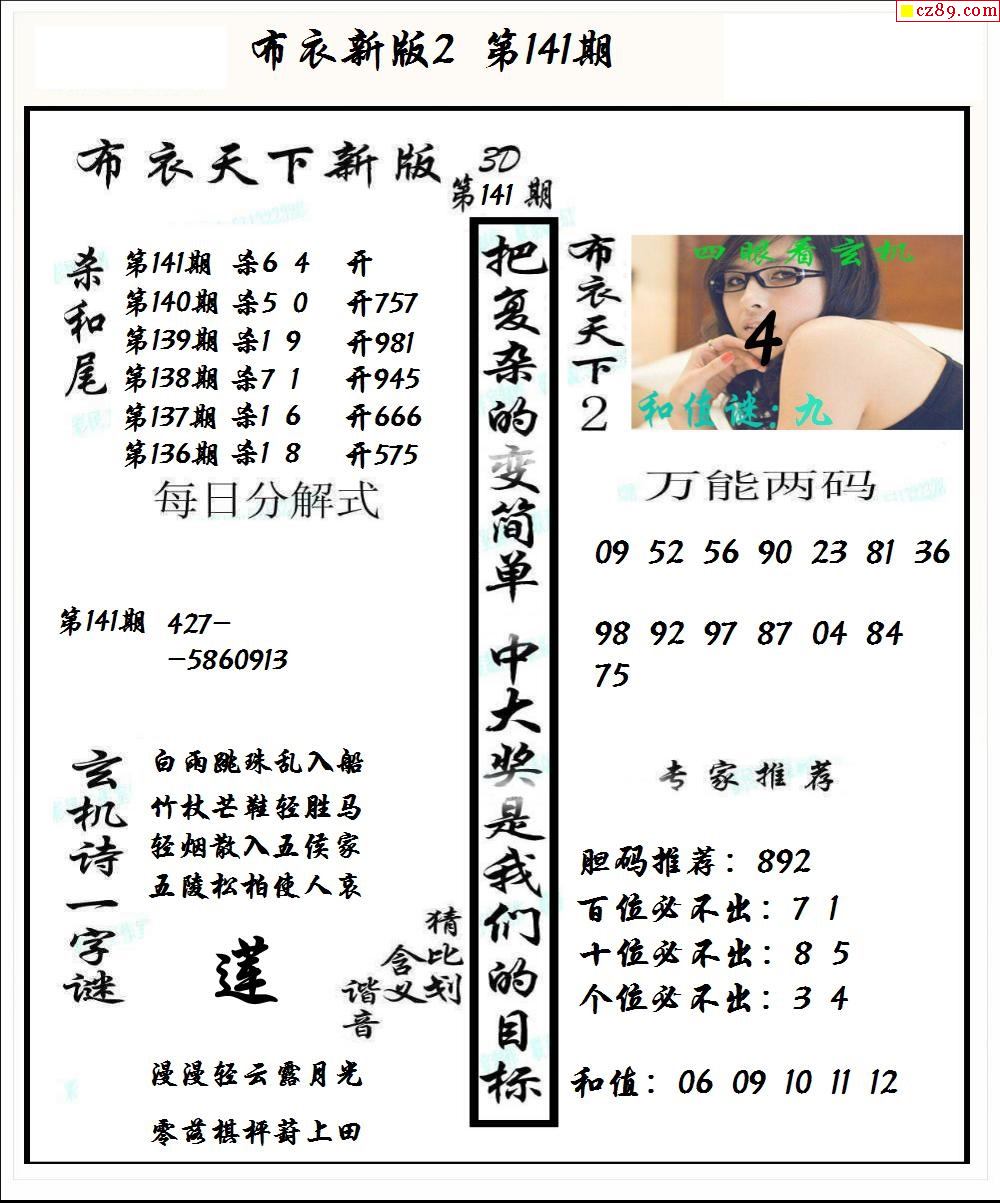 cz89.com
布衣新版2 第141期
布衣天下新版 3D
第141期
杀和尾
第141期 杀6 4 开
第140期 杀5 0 开757
第139期 杀1 9 开981
第138期 杀7 1 开945
第137期 杀1 6 开666
第136期 杀1 8 开575
每日分解式
第141期 427-
-5860913
玄机诗一字谜
白雨跳珠乱入船
竹杖芒鞋轻胜马
轻烟散入五侯家
五陵松柏使人哀
莲
猜比划
含义
谐音
漫漫轻云露月光
零落棋枰葑上田
把复杂的变简单 中大奖是我们的目标
布衣天下2
四眼看玄机
4
和值谜:九
万能两码
09 52 56 90 23 81 36
98 92 97 87 04 84
75
专家推荐
胆码推荐：892
百位必不出：7 1
十位必不出：8 5
个位必不出：3 4
和值：06 09 10 11 12